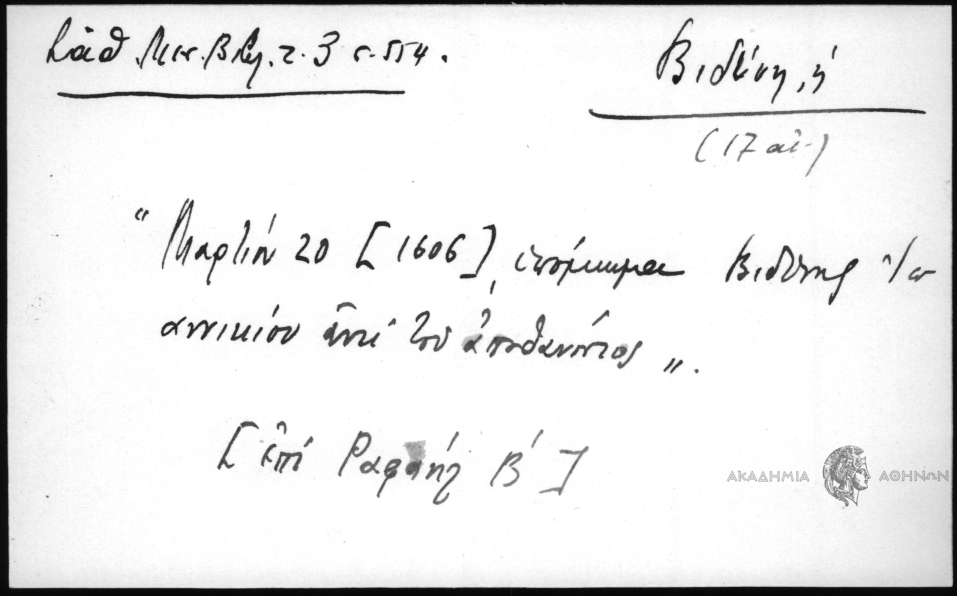 Σάθ. Μεσ. Βιβ. τ. 3 σ. 554.
Βιδύνη, ἡ
(17 αἰ.)
“Μαρτίου 20 [1606], ὑπόμνημα Βιδύνης Ἰω
αννικίου ἀντὶ τοῦ ἀποθανόντος„.
[ἐπὶ Ραφαὴλ Β′]
ΑΚΑΔΗΜΙΑ ΑΘΗΝΩΝ